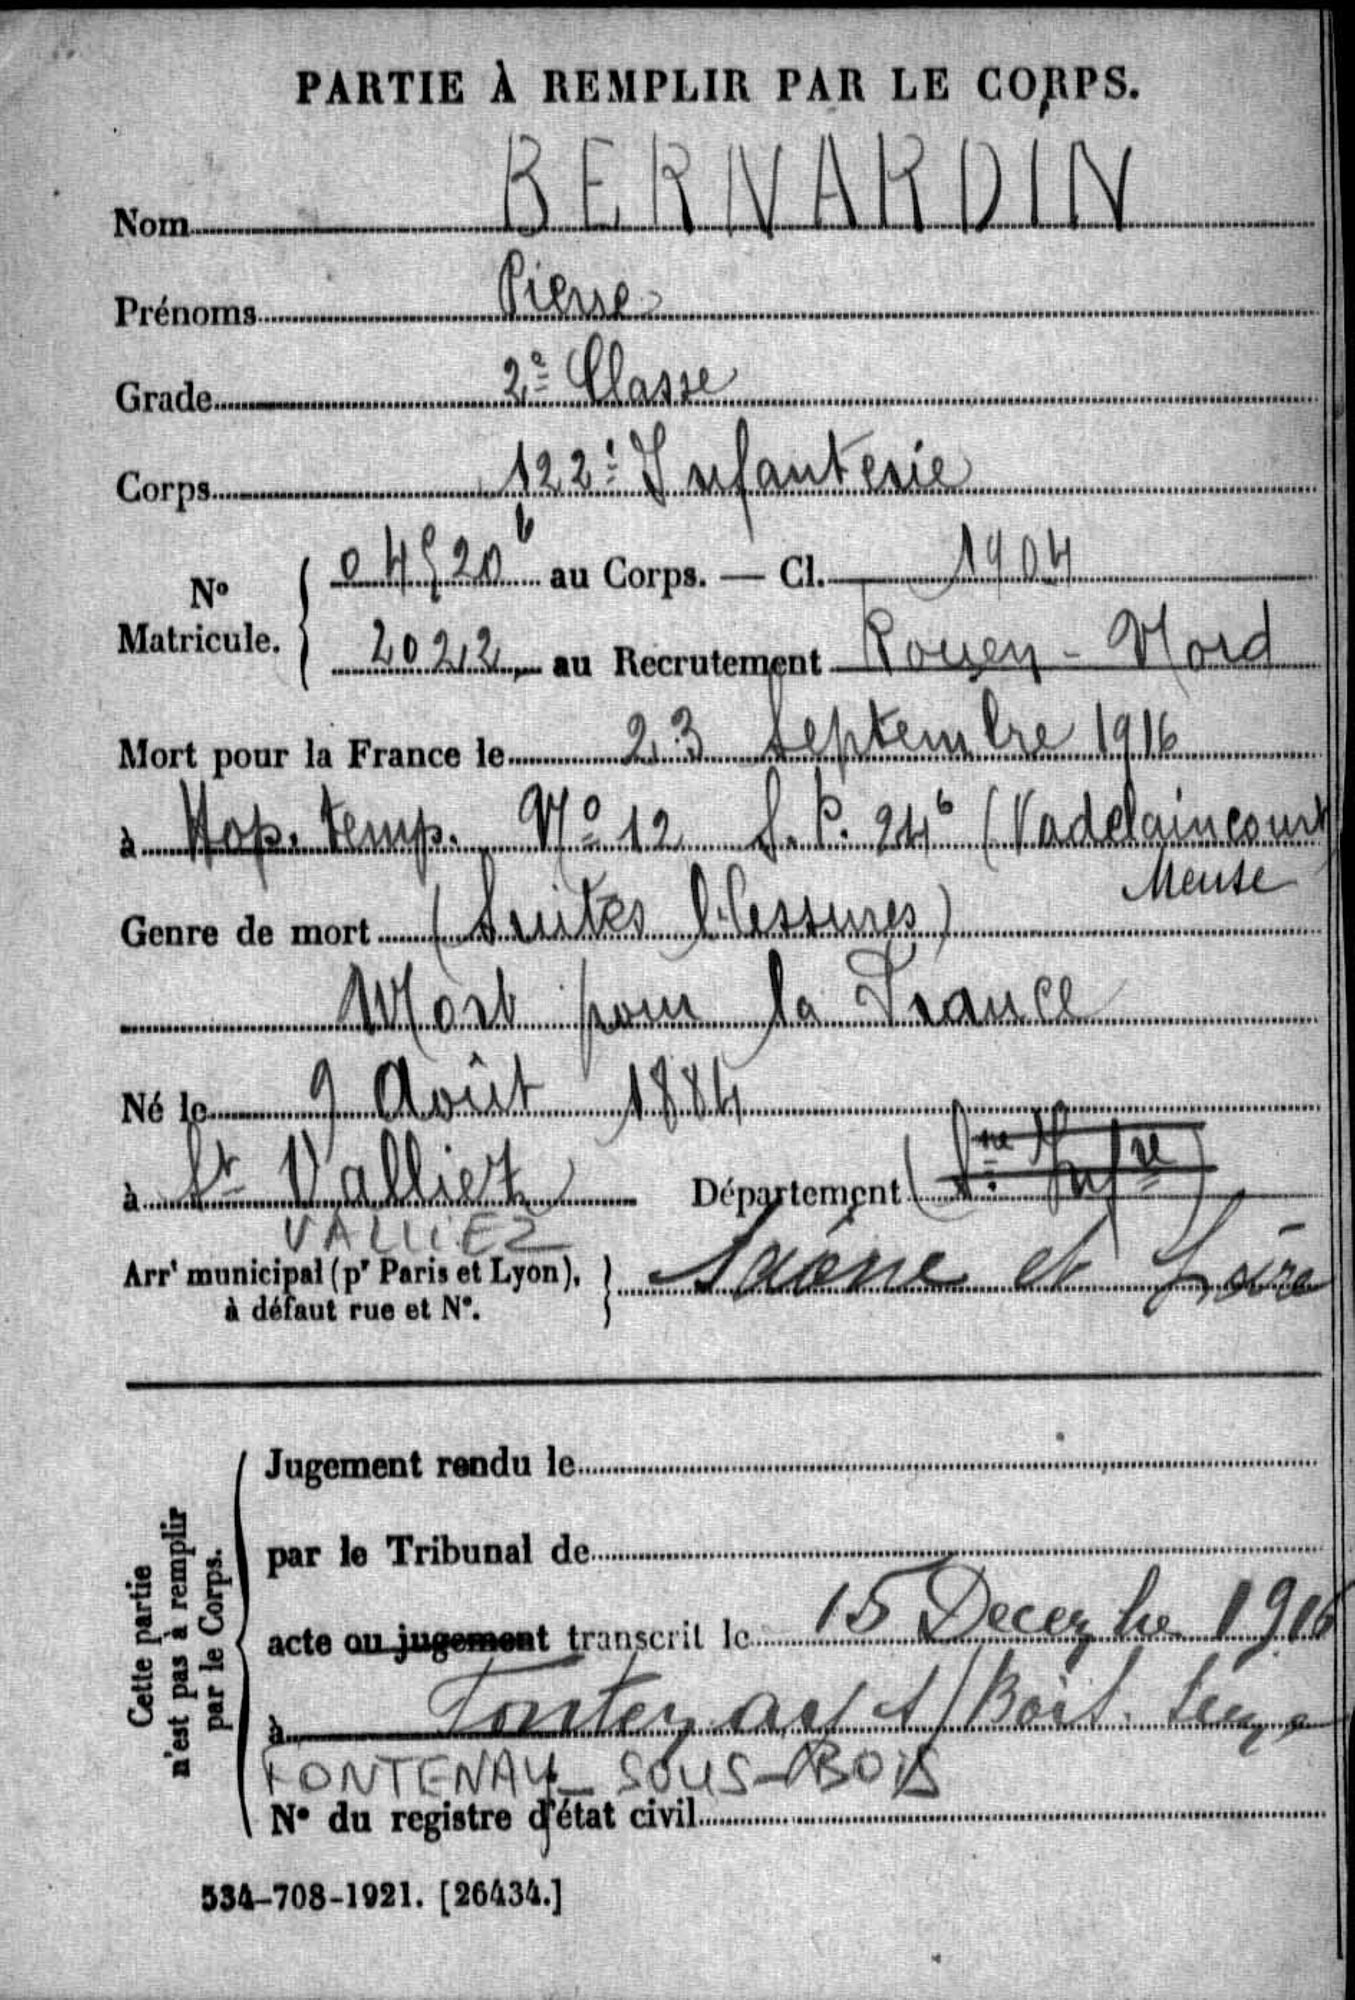 PARTIE À REMPLIR PAR LE CORPS.
Nom BERNARDIN
Prénoms Pierre
Grade 2e Classe
Corps 122e Infanterie
No Matricule. { 04520 au Corps. — Cl. 1904
2022 au Recrutement Rouen-Nord
Mort pour la France le 23 Septembre 1916
à Hop. temp. No 12 S.P. 24 (Vadelaincourt
Meuse
Genre de mort (Suites blessures)
Mort pour la France
Né le 9 Août 1884
à St Valliez Département (Sne Infre)
VALLIEZ
Arrt municipal (pr Paris et Lyon), à défaut rue et No. } Saône et Loire
Cette partie n'est pas à remplir par le Corps.
Jugement rendu le
par le Tribunal de
acte ou jugement transcrit le 15 Decembre 1916
à Fontenay s/Bois. Seine
FONTENAY-SOUS-BOIS
No du registre d'état civil
534-708-1921. [26434.]